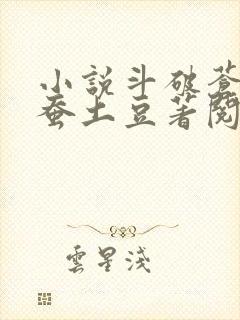 小說斗破蒼
蚕土豆著閱
雲星淺